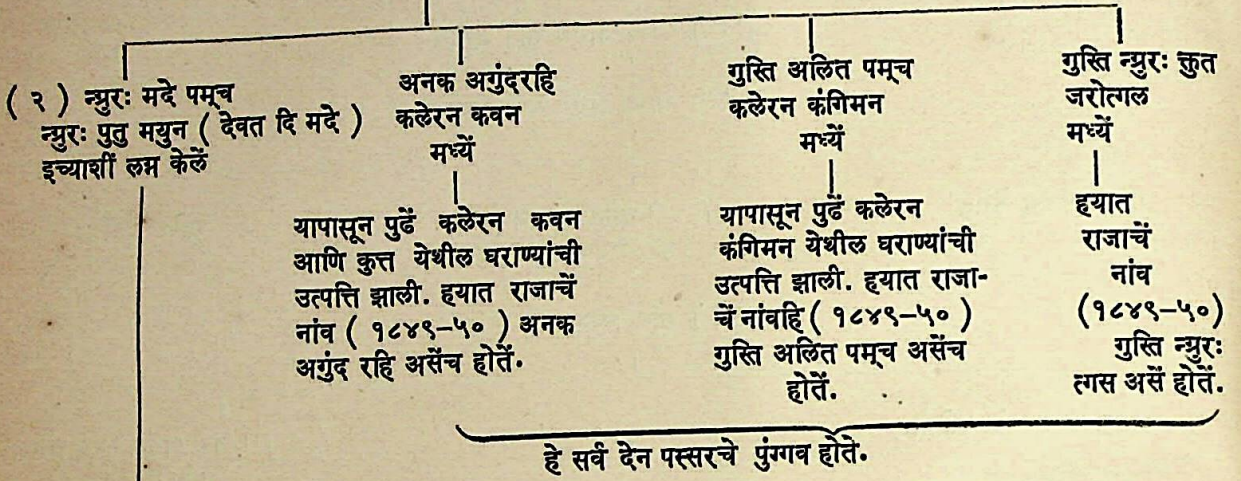 ( २ ) न्म्रुरः मदे पमूच
न्म्रुरः पुतु मयुन ( देवत दि मदे )
इच्याशीं लग्न केलें
अनक अगुंदरहि
कलेरन कवन
मध्यें
यापासून पुढें कलेरन कवन
आणि कुत्त येथील घराण्यांची
उत्पत्ति झाली. हयात राजाचें
नांव ( १८४९–५० ) अनक
अगुंद रहि असेंच होतें.
गुस्ति अलित पमूच
कलेरन कंगिमन
मध्यें
यापासून पुढें कलेरन
कंगिमन येथील घराण्यांची
उत्पत्ति झाली. हयात राजा-
चें नांवहि ( १८४९–५० )
गुस्ति अलित पमूच असेंच
होतें.
गुस्ति न्म्रुरः क्तुत
जरोत्गल
मध्यें
हयात
राजाचें
नांव
(१८४९–५०)
गुस्ति न्म्रुरः
त्गस असें होतें.
हे सर्व देन पस्सरचे पुंग्गव होते.